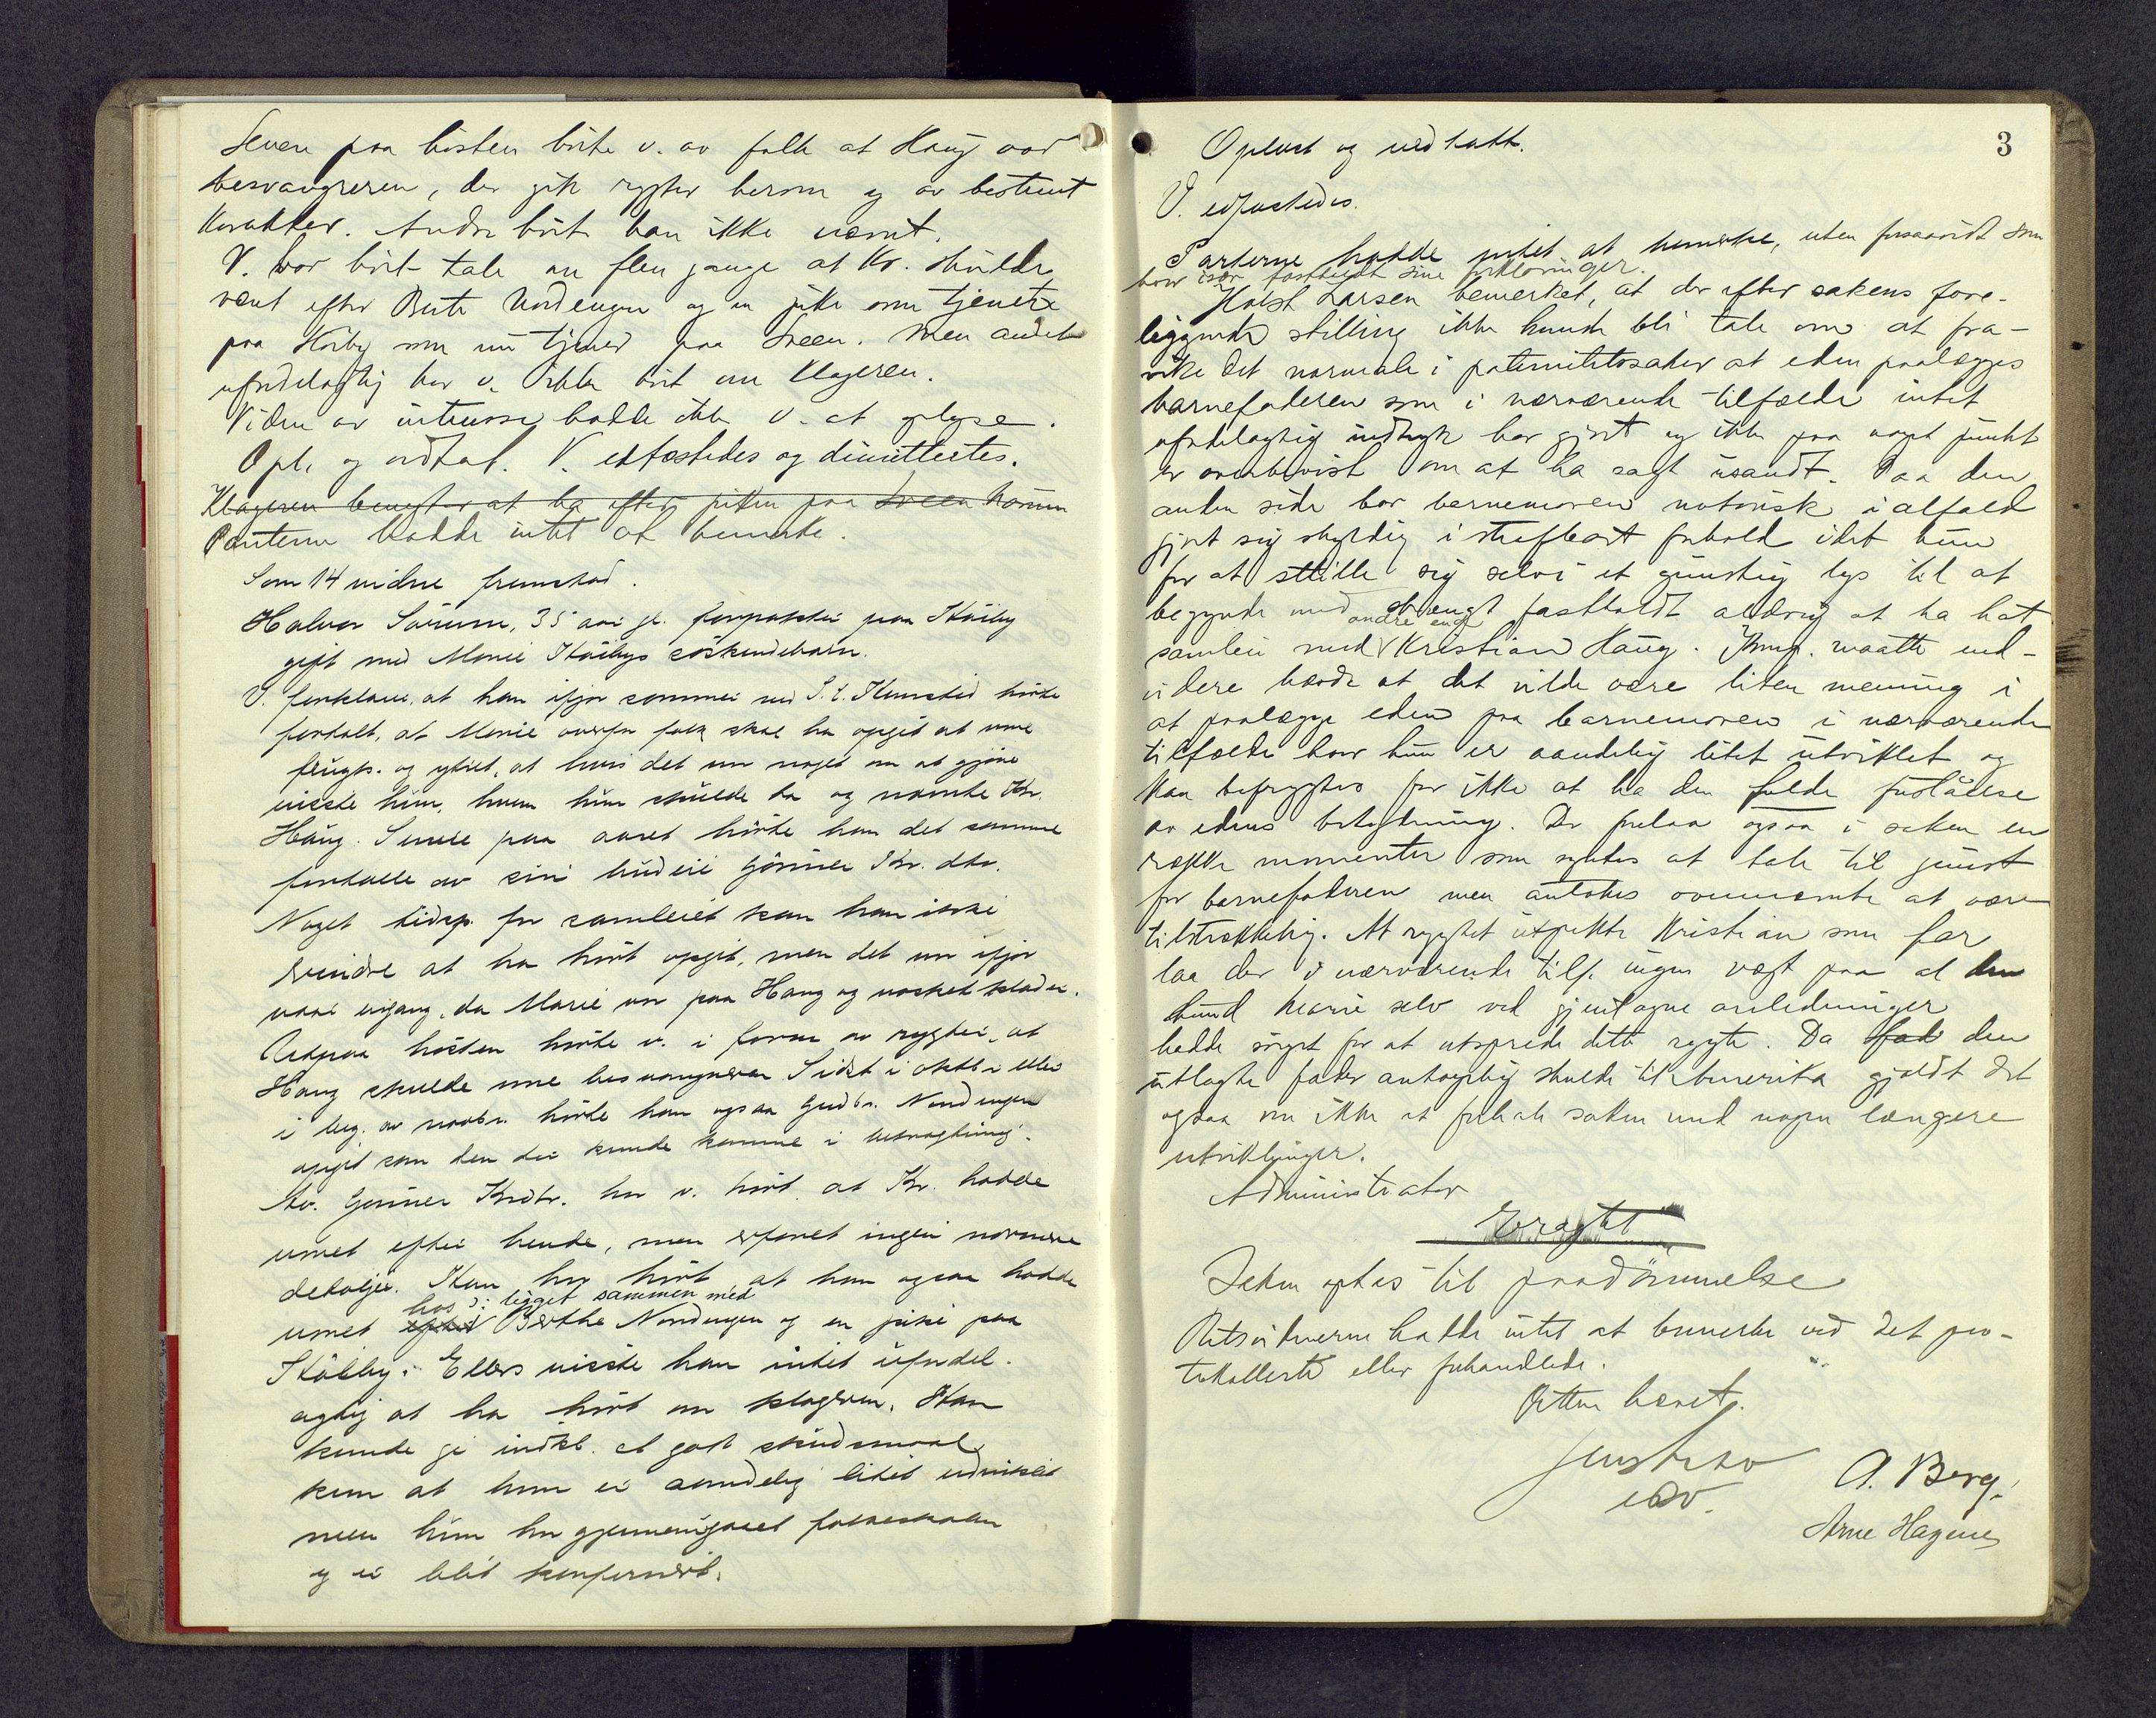 Senere paa høsten hørte v. av folk at Haug var
besvangreren, der gik rygter herom og av bestemt
Karakter. Andre hørt han ikke nævnt.
V. har hørt tale om flere gange at Kr. skulde
vært efter Berte Nordengen og en pike som tjente
paa Körby som nu tjener paa Sveen. Men andet
ufordelagtig har v. ikke hørt om klageren.
Viden av interesse hadde ikke v. at oplyse.
Opl. og vedtat. V. edfæstedes og dimittertes.
Klageren benegter at ha efter piken paa Sveen
Parterne hadde intet at bemerke.
Som 14 vidne fremstod.
Halvor Sörum, 35 aar gl. forpakter paa
gift med Marie søskendebarn.
V. forklarer, at han ifjor sommer ved hørte
fortalt, at Marie overfor folk skal ha opgit at være
frugts. og ytret, at hvis det var noget om at gjøre
visste hun, hvem hun skulde ta og nævnte Kr.
Haug. Senere paa aaret hørte han det samme
fortælle av sin budeie Gunner Kr. dtr.
Noget tidsp. for samleiet kan han ikke
erindre at ha hørt opgit, men det var ifjor
vaar engang, da Marie var paa Haug og vasket klæder.
Utpaa høsten hørte v. i form av rygter, at
Haug skulde være besvangreren. Sidst i oktbr. eller
i beg. av novbr. hørte han ogsaa Gudbr. Nordengen
opgit som den der kunde komme i betragtning.
Av Gunner Krdtr. har v. hørt at Kr. hadde
været efter hende, men erfaret ingen nærmere
detaljer. Han har hørt, at han ogsaa hadde
hos ɔ: ligget sammen med
været efter Berthe Nordengen og en pike paa
Ellers visste han intet ufordel-
agtig at ha hørt om klageren. Han
kunde gi indkl. et godt skudsmaal
kun at hun er aandelig litet utviklet
men hun har gjennemgaaet folkeskolen
og er blit konfirmert.
3
Oplæst og vedtatt.
V. edfæstedes.
Parterne hadde intet at bemerke, uten forsaavidt som
hver især fastholdt sine forklaringer.
Holst Larsen bemerket, at der efter sakens fore-
liggende stilling ikke kunde bli tale om at fra-
vike det normale i paternitetssaker at eden paalægges
barnefaderen som i nærværende tilfælde intet
ufordelagtig indtryk har gjort og ikke paa noget punkt
er overbevist om at ha sagt usandt. Paa den
anden side har barnemoren notorisk ialfald
gjort sig skyldig i strafbart forhold idet hun
for at stille sig selv i et gunstig lys til at
begynde med strengt fastholdt aldrig at ha hat
andre end
samleie med Kristian Haug. Komp. maatte end-
videre hævde at det vilde være liten mening i
at paalægge eden paa barnemoren i nærværende
tilfælde hvor hun er aandelig litet utviklet og
kan befryktes for ikke at ha den fulde forståelse
av edens betydning. Der forelaa ogsaa i saken en
række momenter som syntes at tale til gunst
for barnefaderen men antokes ovennævnte at være
tilstrækkelig. At rygtet utpekte Kristian som far
laa der i nærværende tilf. ingen vegt paa al den
stund Marie selv ved gjentagne anledninger
hadde sørget for at utsprede dette rygte. Da fad den
utlagte fader antagelig skulde til Amerika gjaldt det
ogsaa om ikke at forhale saken med nogen længere
utviklinger.
Administrator
Eragtet
Saken optas til paadömmelse
Retsvidnerne hadde intet at bemerke ved det pro-
tokollerte eller forhandlede.
Retten hævet.
A. Berg.
Arne Hagene